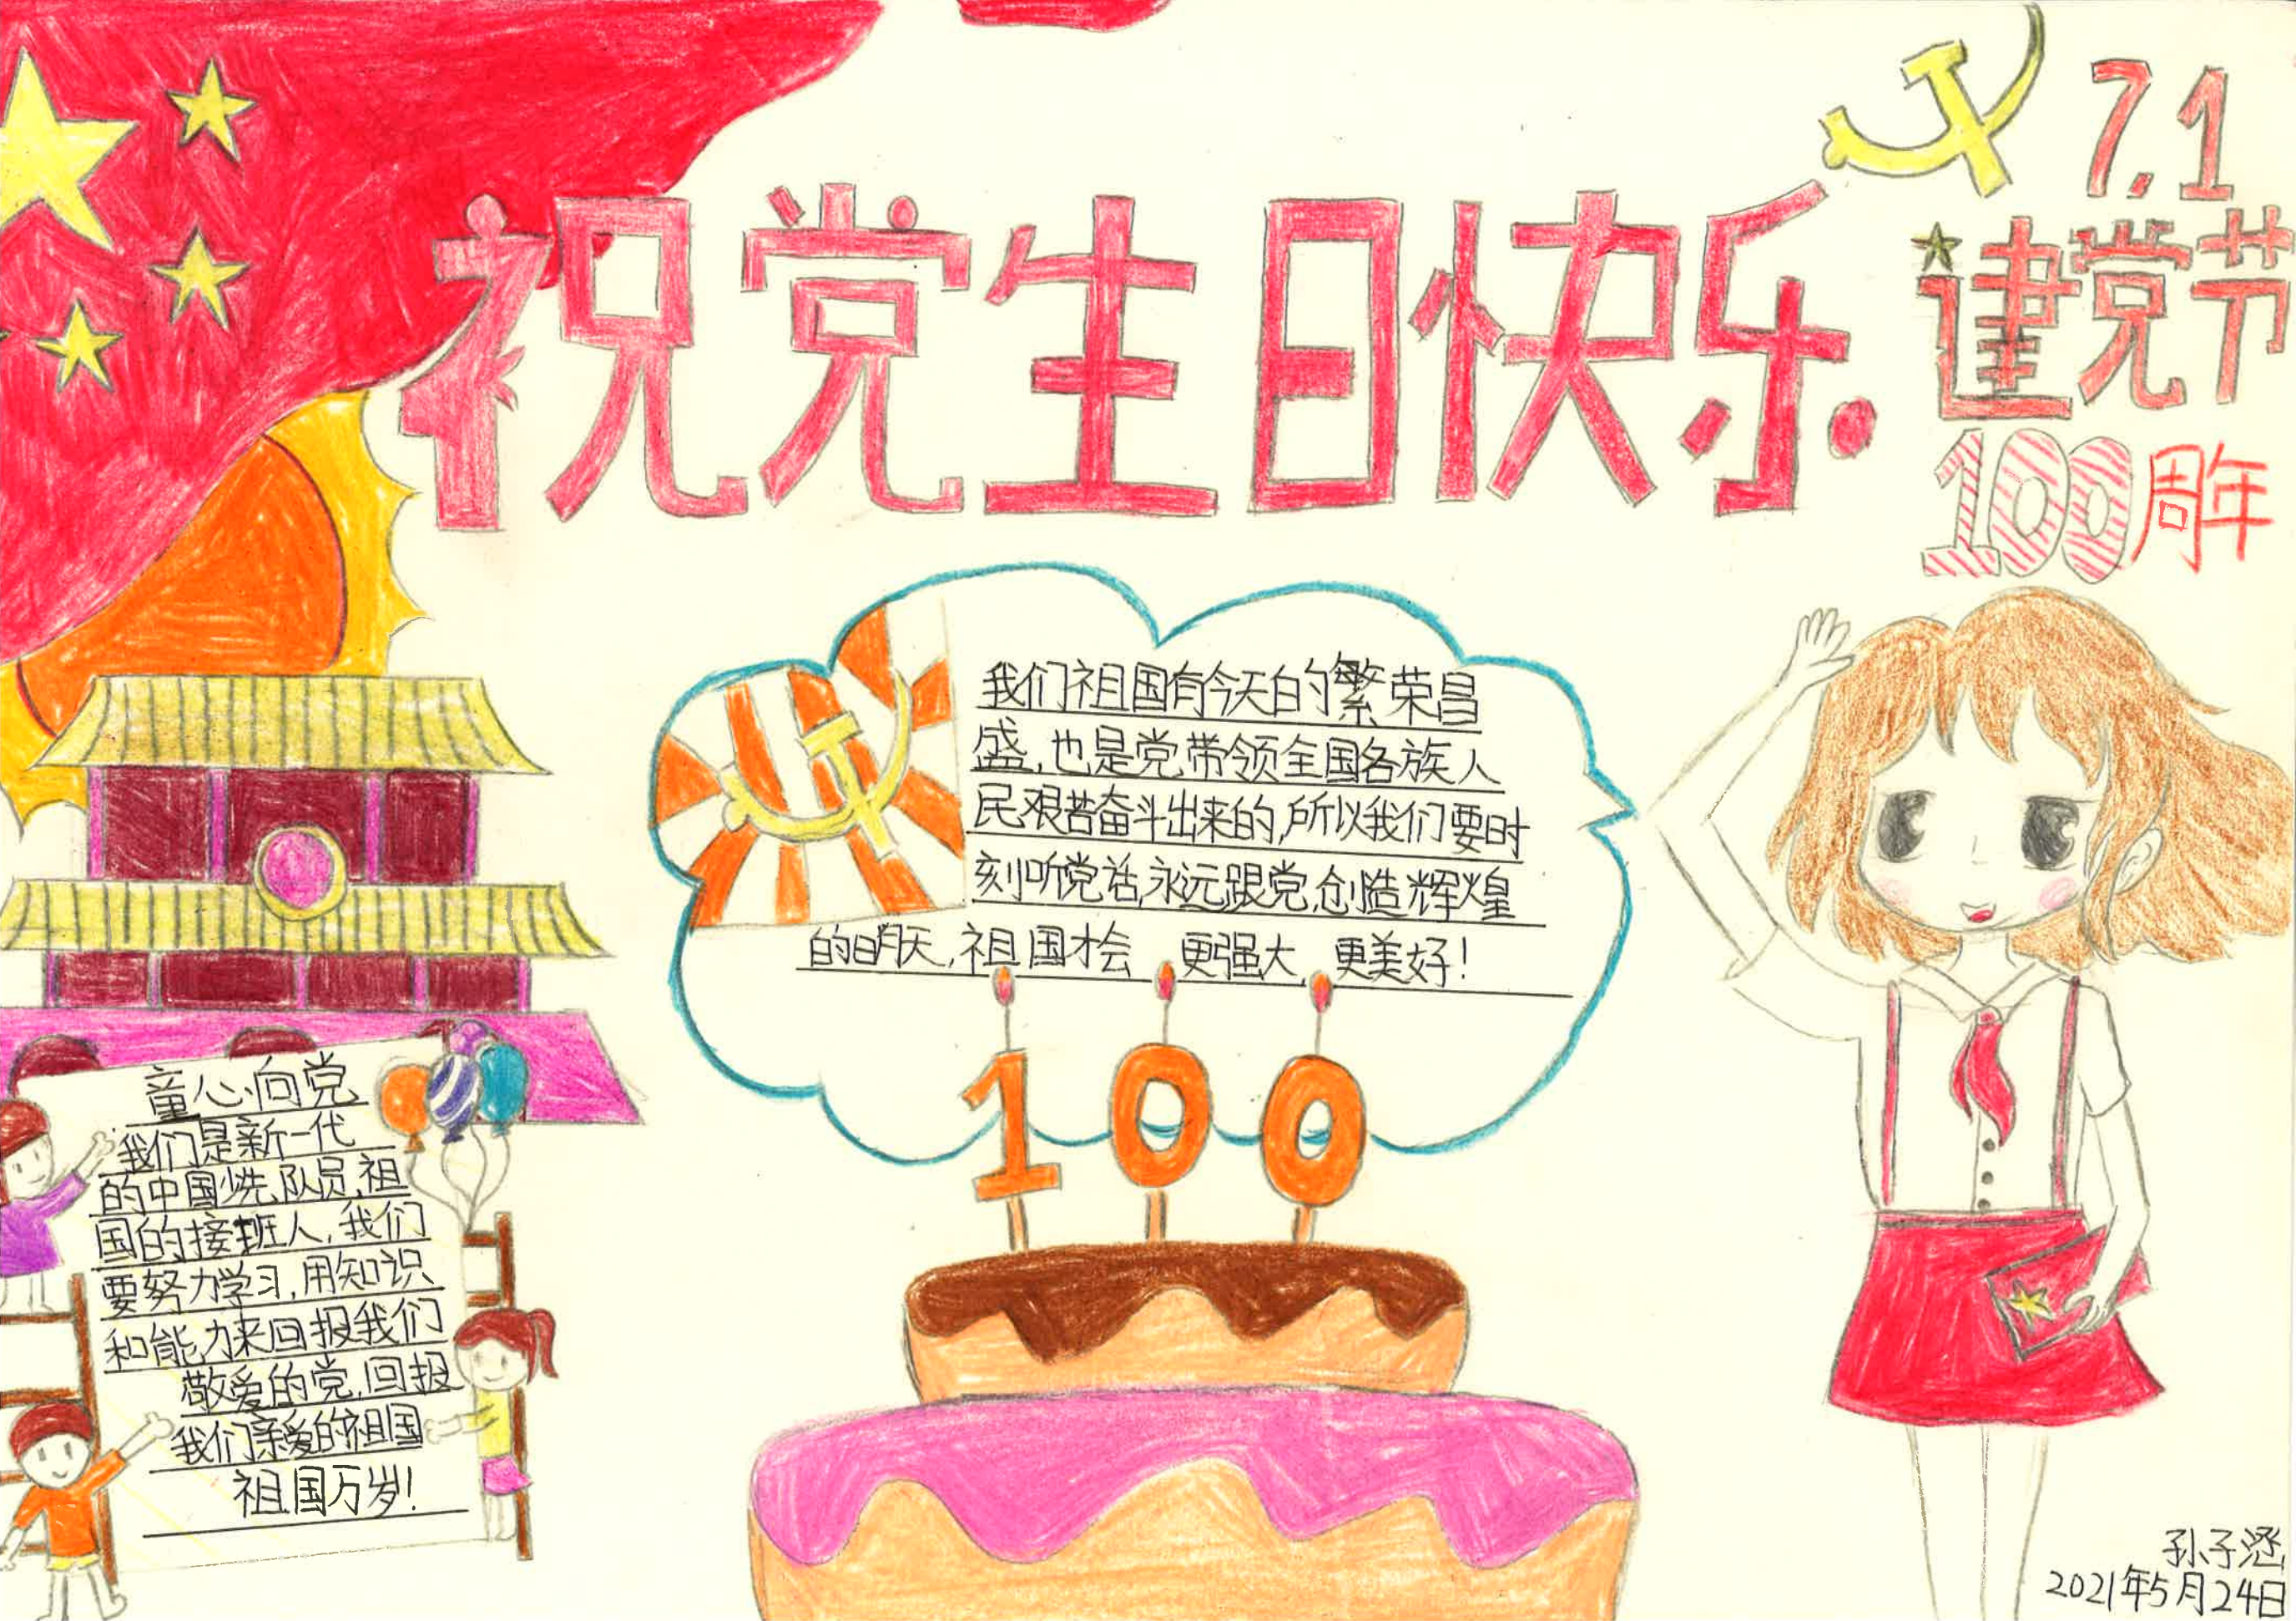 祝党生日快乐
7.1
建党节
100周年
我们祖国有今天的繁荣昌
盛,也是党带领全国各族人
民艰苦奋斗出来的,所以我们要时
刻听党话,永远跟党,创造辉煌
的明天,祖国才会 更强大,更美好!
100
童心向党
我们是新一代
的中国少先队员,祖
国的接班人,我们
要努力学习,用知识
和能力来回报我们
敬爱的党,回报
我们亲爱的祖国
祖国万岁!
孙子涵
2021年5月24日